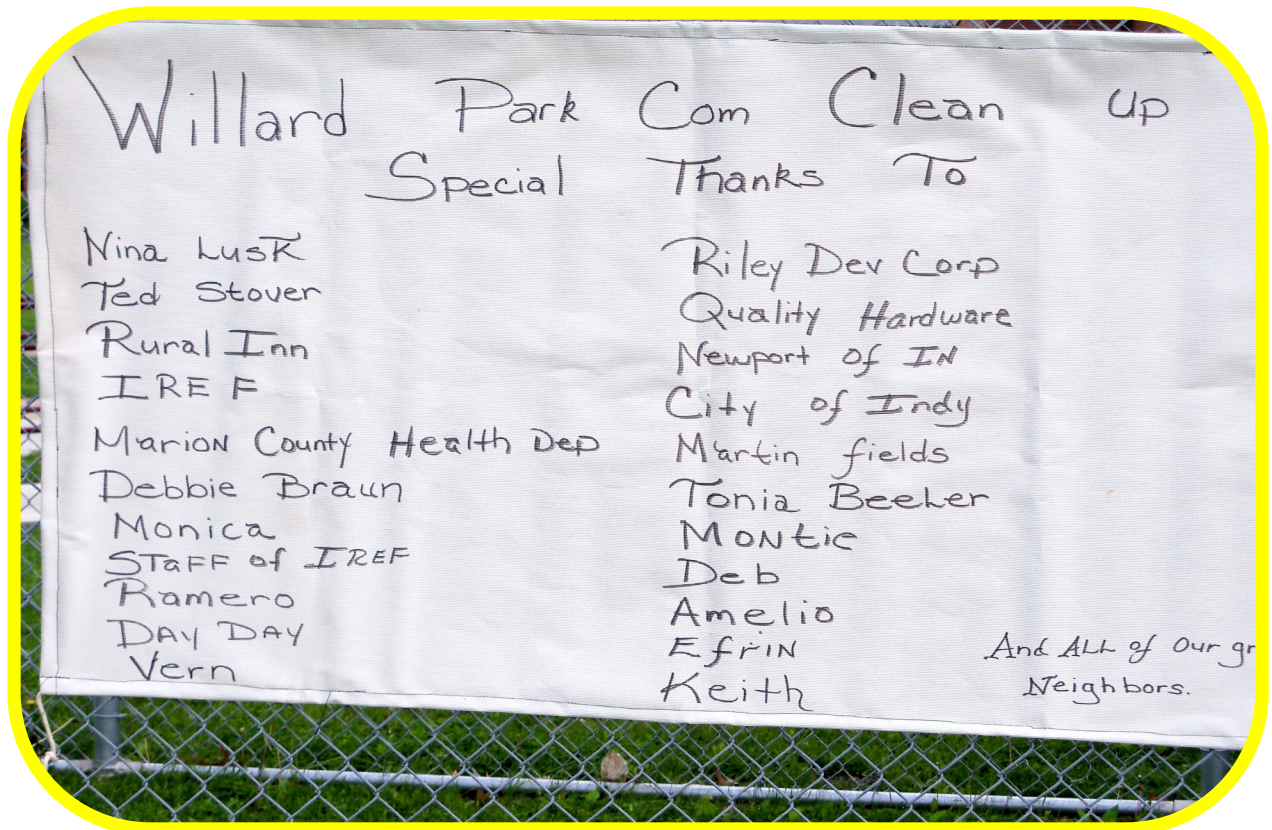 Willard Park Com Clean Up
Special Thanks To
Nina Lusk
Ted Stover
Rural Inn
IREF
Marion County Health Dep
Debbie Braun
Monica
Staff of IREF
Ramero
Day Day
Vern
Riley Dev Corp
Quality Hardware
Newport of IN
City of Indy
Martin fields
Tonia Beeler
Montie
Deb
Amelio
Efrin
Keith
And ALL of our
Neighbors.